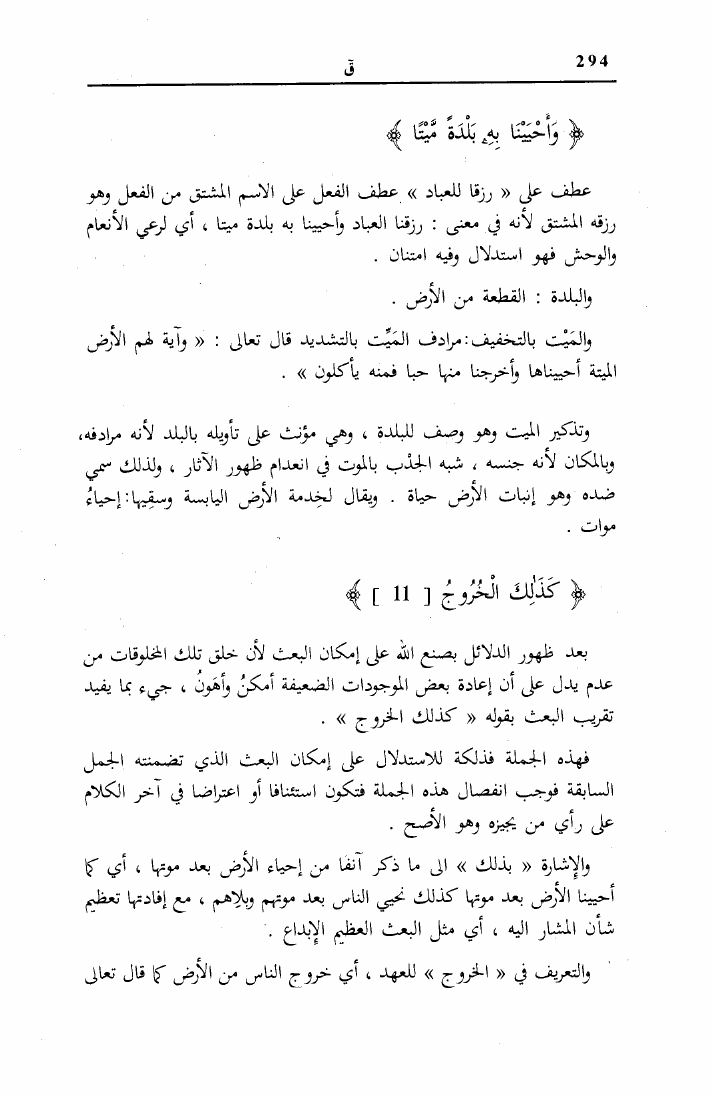 294
قٓ
﴿ وَأَحْيَيْنَا بِهِ بَلْدَةً مَّيْتًا ﴾
عطف على « رزقا للعباد » عطف الفعل على الاسم المشتق من الفعل وهو
رزقه المشتق لأنه في معنى : رزقنا العباد وأحيينا به بلدة ميتا ، أي لرعي الأنعام
والوحش فهو استدلال وفيه امتنان .
والبلدة : القطعة من الأرض .
والمَيْت بالتخفيف: مرادف المَيِّت بالتشديد قال تعالى : « وآية لهم الأرض
الميتة أحييناها وأخرجنا منها حبا فمنه يأكلون » .
وتذكير الميت وهو وصف للبلدة ، وهي مؤنث على تأويله بالبلد لأنه مرادفه،
وبالمكان لأنه جنسه ، شبه الجدْب بالموت في انعدام ظهور الآثار ، ولذلك سمي
ضده وهو إنبات الأرض حياة . ويقال لخِدمة الأرض اليابسة وسقيِها: إحياءُ
موات .
﴿ كَذَٰلِكَ الْخُرُوجُ [ 11 ] ﴾
بعد ظهور الدلائل بصنع الله على إمكان البعث لأن خلق تلك المخلوقات من
عدم يدل على أن إعادة بعض الموجودات الضعيفة أمكنُ وأهَونُ ، جيء بما يفيد
تقريب البعث بقوله « كذلك الخروج » .
فهذه الجملة فذلكة للاستدلال على إمكان البعث الذي تضمنته الجمل
السابقة فوجب انفصال هذه الجملة فتكون استئنافا أو اعتراضا في آخر الكلام
على رأي من يجيزه وهو الأصح .
والإشارة « بذلك » الى ما ذكر آنفا من إحياء الأرض بعد موتها ، أي كما
أحيينا الأرض بعد موتها كذلك نحيي الناس بعد موتهم وبلاهم ، مع إفادتها تعظيم
شأن المشار اليه ، أي مثل البعث العظيم الإبداع .
والتعريف في « الخروج » للعهد ، أي خروج الناس من الأرض كما قال تعالى